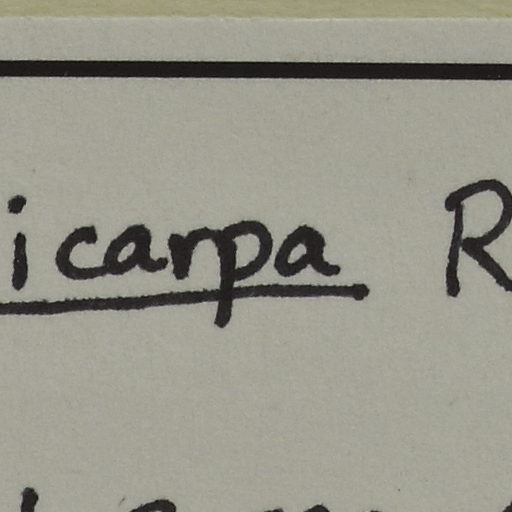 icarpa R